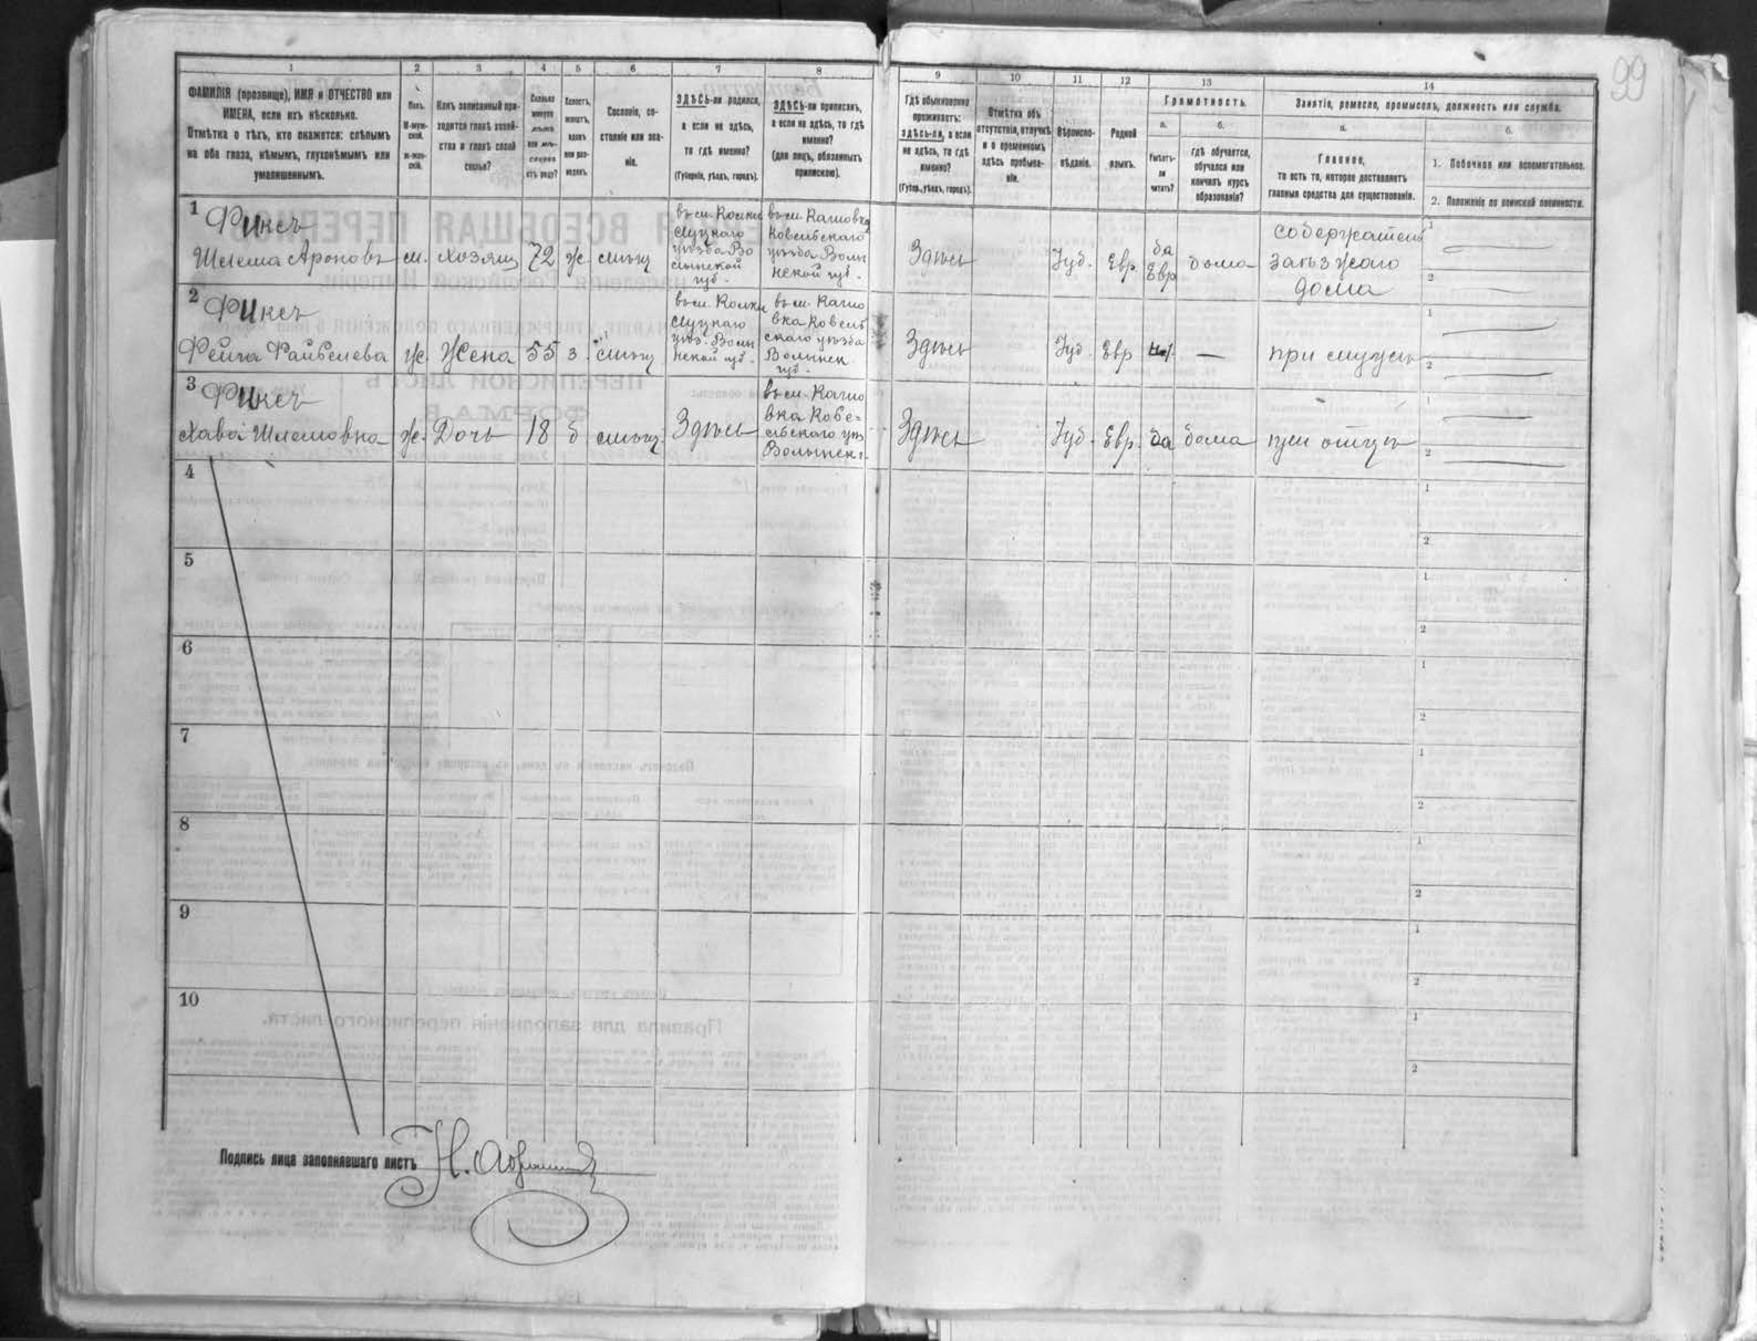 99
1
2
3
4
5
6
7
8
9
10
11
12
13
14
ФАМИЛІЯ (прозвище), ИМЯ и ОТЧЕСТВО или
ИМЕНА, если ихъ нѣсколько.
Отмѣтка о тѣхъ, кто окажется: слѣпымъ
на оба глаза, нѣмымъ, глухонѣмымъ или
умалишеннымъ.
Полъ.
М-муж-
ской.
ж-жен-
скій.
Какъ записанный при-
ходится главѣ хозяй-
ства и главѣ своей
семьи?
Сколько
минуло
лѣтъ
или мѣ-
сяцевъ
отъ роду?
Холостъ,
женатъ,
вдовъ
или раз-
веденъ.
Сословіе, со-
стояніе или зва-
ніе.
ЗДѢСЬ-ли родился,
а если не здѣсь,
то гдѣ именно?
(Губернія, уѣздъ, городъ).
ЗДѢСЬ-ли приписанъ,
а если не здѣсь, то гдѣ
именно?
(для лицъ, обязанныхъ
припискою).
Гдѣ обыкновенно
проживаетъ:
здѣсь-ли, а если
не здѣсь, то гдѣ
именно?
(Губер., уѣздъ, городъ).
Отмѣтка объ
отсутствіи, отлучкѣ
и о временномъ
здѣсь пребыва-
ніи.
Вѣроиспо-
вѣданіе.
Родной
языкъ.
Грамотность.
а.
Умѣетъ-
ли
читать?
б.
гдѣ обучается,
обучался или
кончилъ курсъ
образованія?
Занятіе, ремесло, промыселъ, должность или служба.
а.
Главное,
то есть то, которое доставляетъ
главныя средства для существованія.
б.
1. Побочное или вспомогательное.
2. Положеніе по воинской повинности.
1 Фиксъ
Шлема Ароновъ
м.
хозяинъ
72
ж.
мѣщ
въ м. Колки
Луцкаго
уѣзда Во
лынской
губ.
въ м. Кашовкѣ
Ковельскаго
уѣзда Волы
нской губ.
Здѣсь
Іуд.
Евр.
да
Евр
дома
содержатель
заѣзжаго
дома
1
2
2 Фиксъ
Фейга Файвелева
ж.
Жена
55
з
мѣщ
въ м. Колки
Луцкаго
уѣз. Волы
нской губ.
въ м. Кашо
вка Ковель
скаго уѣзда
Волынск
губ.
Здѣсь
Іуд.
Евр
нѣт
—
при мужѣ
1
2
3 Фиксъ
Хава Шлемовна
ж.
Дочь
18
д
мѣщ.
Здѣсь
въ м. Кашо
вка Кове-
льскаго уѣз
Волынск г.
Здѣсь
Іуд.
Евр.
да
дома
при отцѣ
1
2
4
1
2
5
1
2
6
1
2
7
1
2
8
1
2
9
1
2
10
1
2
Подпись лица заполнявшаго листъ